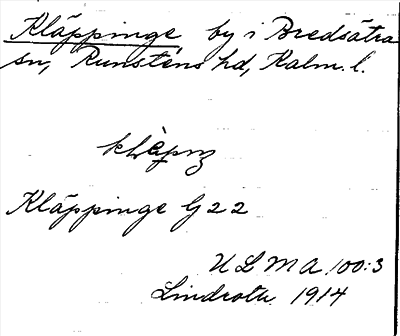 Kläppinge by i Bredsätra
sn, Runstens hd, Kalm. l.
Kläppinge G 22
ULMA 100:3
Lindroth 1914